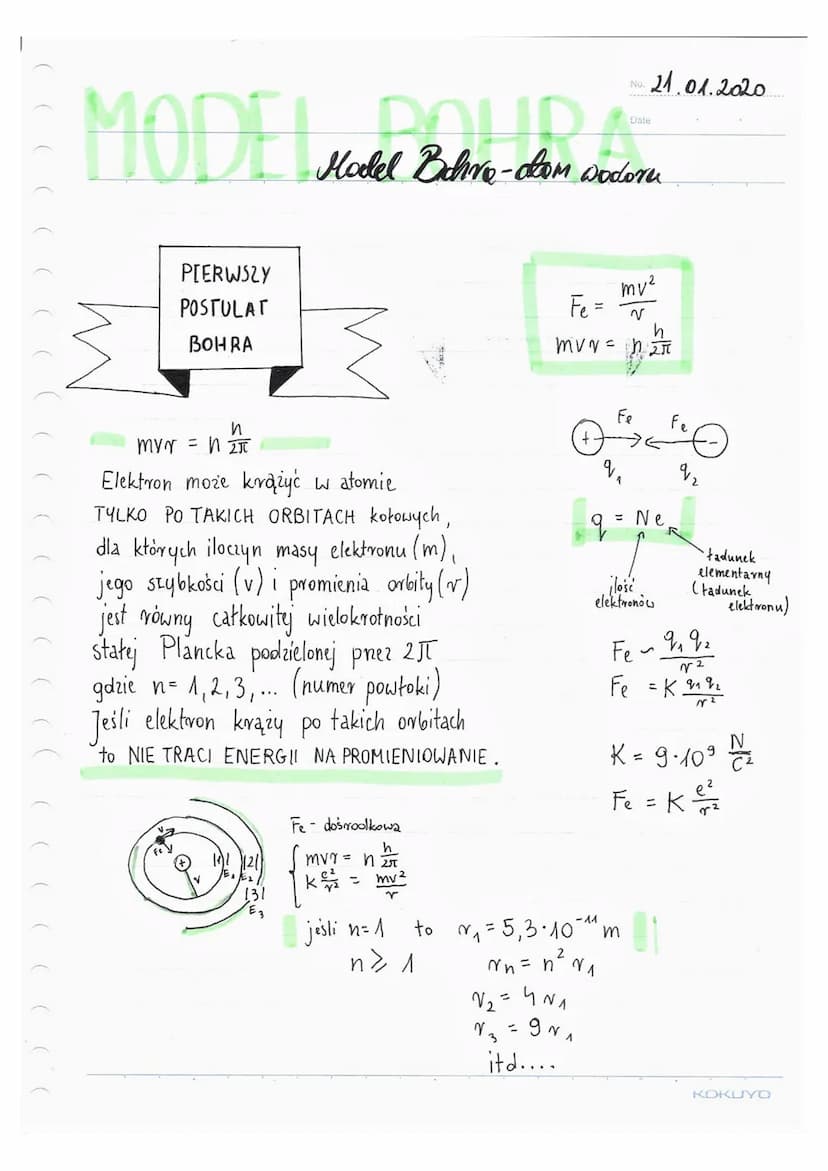 No. 21.01.2020
Date
MODEL BOHRA
Model Bohra - atom wodoru
PIERWSZY
POSTULAT
BOHRA
Fe = mv²/r
mvr = n h/2π
mvr = n h/2π
Elektron może krążyć w atomie
TYLKO PO TAKICH ORBITACH kołowych,
dla których iloczyn masy elektronu (m),
jego szybkości (v) i promienia orbity (r)
jest równy całkowitej wielokrotności
stałej Plancka podzielonej przez 2π
gdzie n= 1,2,3,... (numer powłoki)
Jeśli elektron krąży po takich orbitach
to NIE TRACI ENERGII NA PROMIENIOWANIE.
Fe Fe
+ -
q₁ q₂
q = Ne
ilość
elektronów
ładunek
elementarny
(ładunek
elektronu)
Fe ~ q₁ q₂/r²
Fe = K q₁ q₂/r²
K = 9·10⁹ N/C²
Fe = K e²/r²
v
Fe
+
r
|1| |2|
E₁ E₂
|3|
E₃
Fe - dośrodkowa
mvr = n h/2π
k e²/r² = mv²/r
jeśli n=1 to r₁ = 5,3·10⁻¹¹ m
n ⩾ 1 rn = n² r₁
r₂ = 4 r₁
r₃ = 9 r₁
itd....
KOKUYO